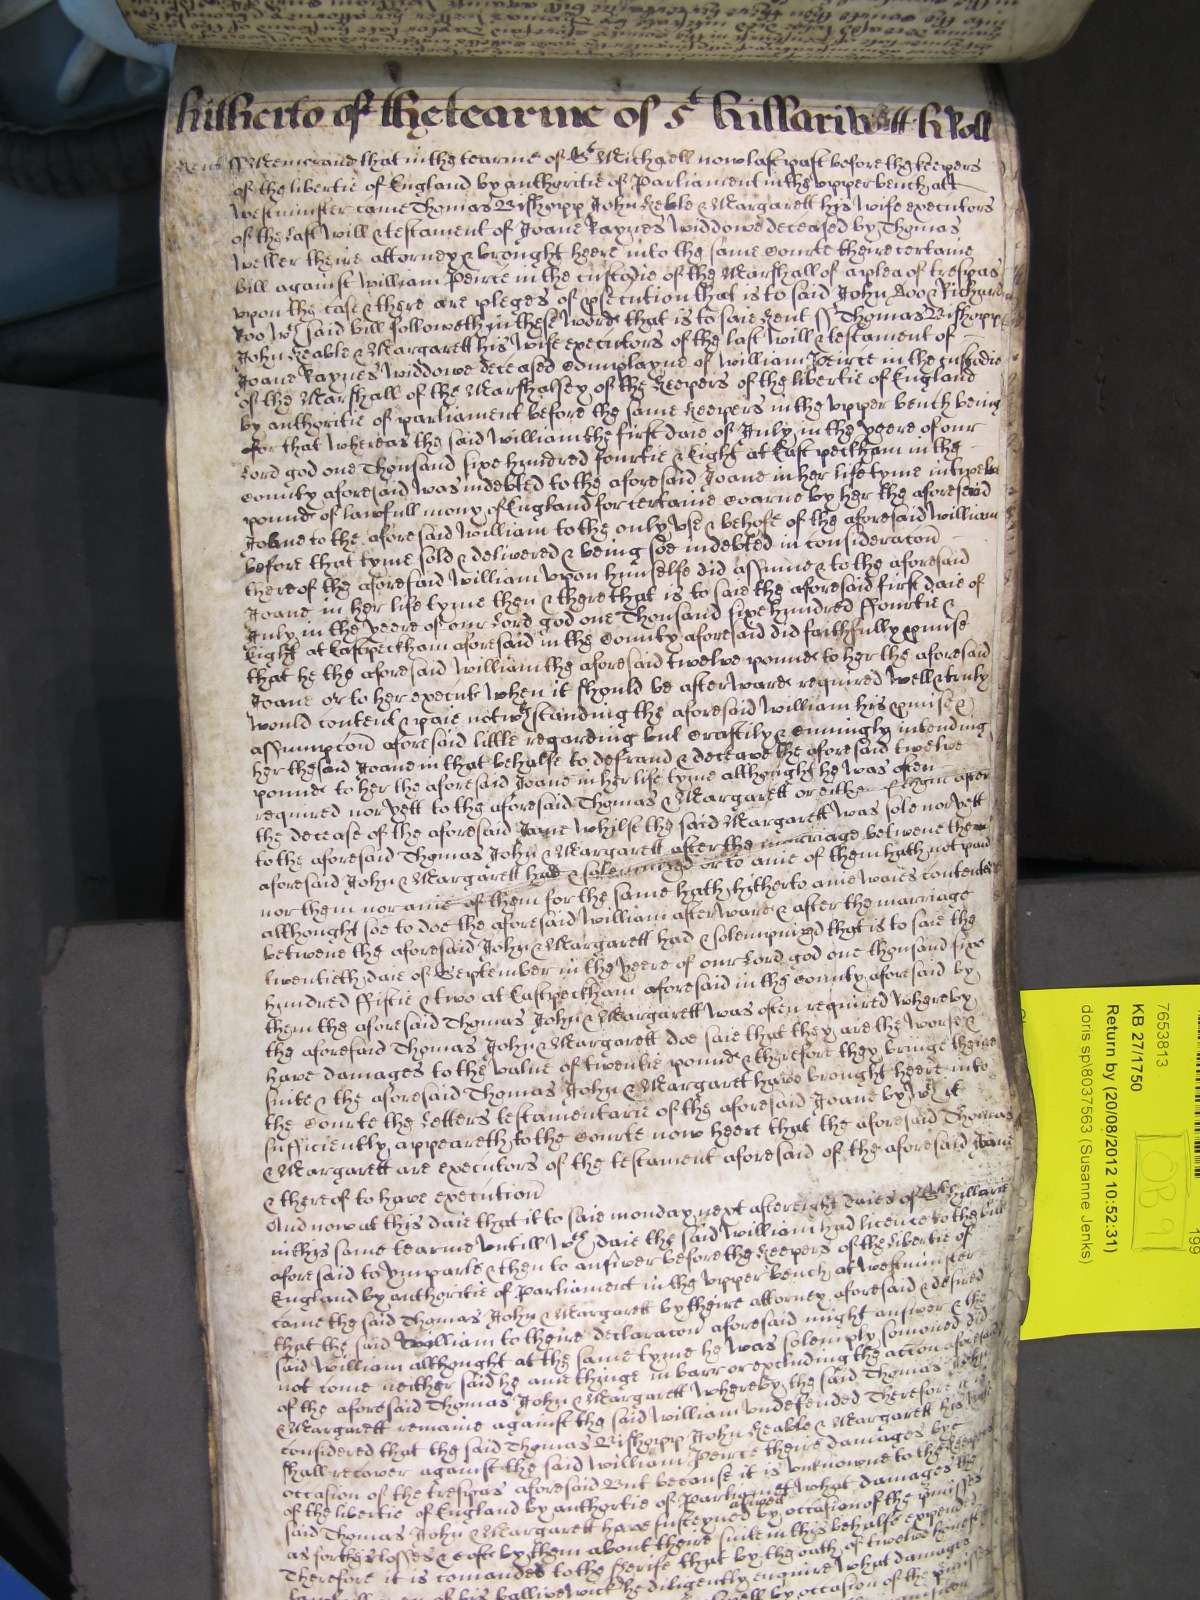 hitherto of the tearme of St Hillarii Witt h Roll
Kent ss Memorand that in the tearme of St Michaell now last past before the keepers
of the libertie of England by authoritie of Parliament in the upper bench att
Westminster came Thomas Bishopp John Keble & Margarett his wife executors
of the last will & testament of Joane Raynes widdowe deceased by Thomas
Weller theire attorney & brought heere into the same Courte theire certaine
bill against William Peirce in the custodie of the Marshall of a plea of trespas
upon the case & there are pleges of psecution that is to said John Doo & Richard
Roo wch said bill followeth in these words that is to saie Kent ss Thomas Bishopp
John Keable & Margarett his wife executors of the last will & testament of
Joane Raynes widdowe deceased Complayne of William Peirce in the custodie
of the Marshall of the Marshalsey of the Keepers of the libertie of England
by authoritie of parliament before the same keepers in the upper bench being
for that whereas the said William the first daie of July in the yeere of our
Lord god one Thousand sixe hundred fourtie & Eight at East peckham in the
County aforesaid was indebted to the aforesaid Joane in her life tyme in twelve
pounds of lawfull mony of England for certaine Coarne by her the aforesaid
Joane to the aforesaid William to the only use & behofe of the aforesaid William
before that tyme sold & delivered & being soe indebted in consideracon
thereof the aforesaid William upon himselfe did assume & to the aforesaid
Joane in her life tyme then & there that is to saie the aforesaid first daie of
July in the yeere of our Lord god one Thousand sixe hundred ffourtie &
Eight at Eastpeckham aforesaid in the County aforesaid did faithfully pmise
that he the aforesaid William the aforesaid twelve pounds to her the aforesaid
Joane or to her execut when it should be afterwards required well & truly
would content & paie notwthstanding the aforesaid William his pmise &
assumpcon aforesaid little regarding but craftily & cunningly intending
her the said Joane in that behalfe to defraud & deceave the aforesaid twelve
pounds to her the aforesaid Joane in her life tyme allthought he was often
required nor yett to the aforesaid Thomas & Margarett or either of them after
the decease of the aforesaid Joane whilst the said Margarett was sole nor yett
to the aforesaid Thomas John & Margarett after the marriage betwene the
aforesaid John & Margarett had & solemnized or to anie of them hath not paid
nor them nor anie of them for the same hath hitherto anie waies contented
allthought soe to doe the aforesaid William afterwards & after the marriage
betwene the aforesaid John & Margarett had & solempnizd that is to saie the
twentieth daie of September in the yeere of our Lord god one thousand sixe
hundred ffiftie & two at Eastpeckham aforesaid in the County aforesaid by
them the aforesaid Thomas John & Margarett was often required whereby
the aforesaid Thomas John & Margarett doe said that they are the worse &
have damages to the value of twentie pounds & therefore they bringe theire
suite & the aforesaid Thomas John & Margarett have brought heere into
the Courte the Letters testamentarie of the aforesaid Joane by wch it
sufficiently appeareth to the Courte now heere that the aforesaid Thomas
& Margarett are executors of the testament aforesaid of the aforesaid Joane
& thereof to have execution
And now at this daie that it to said monday next after eight daies of St Hillarie
in this same tearme untill wch daie the said William had licence to the bill
aforesaid to ymparle & then to answer before the Keepers of the Libertie of
England by authoritie of Parliament in the upper bench at Westminster
came the said Thomas John & Margarett by theire attorney aforesaid & desired
that the said William to theire declaracon aforesaid might answer & the
said William allthought at the same tyme he was solemply somoned did
not come neither said he anie thinge in barr or excluding the action aforesaid
of the aforesaid Thomas John & Margarett whereby the said Thomas John
& Margarett remaine against the said William undefended Therefore it is
considered that the said Thomas Bishopp John Keable & Margarett his wife
shall recover against the said William Peirce theire damages by
occasion of the trespas aforesaid But because it is unknowne to the keepers
of the libertie of England by authoritie of Parliament what damages the
said Thomas John & Margarett have susteyned aswell by occasion of the pmisses
as for theis losses & costs by them about theire suite in this behalfe expended
Therefore it is comanded to the sherife that by the oath of twelve honest
lawfull men of his balliwick he diligently enquire what damages
by occasion of the pmisses
7653813
KB 27/1750
Return by (20/08/2012 10:52:31)
doris sp\8037563 (Susanne Jenks)
OB 91
199